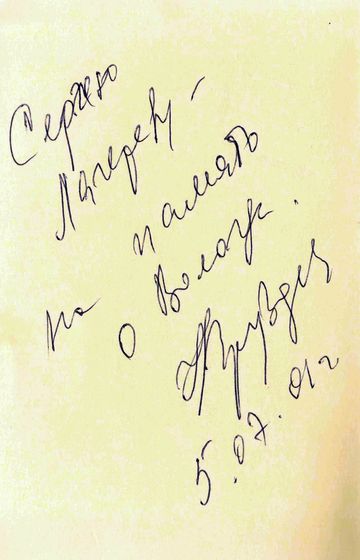 Сергею
Лагереву -
на память
о Вологде.
5.07.01г